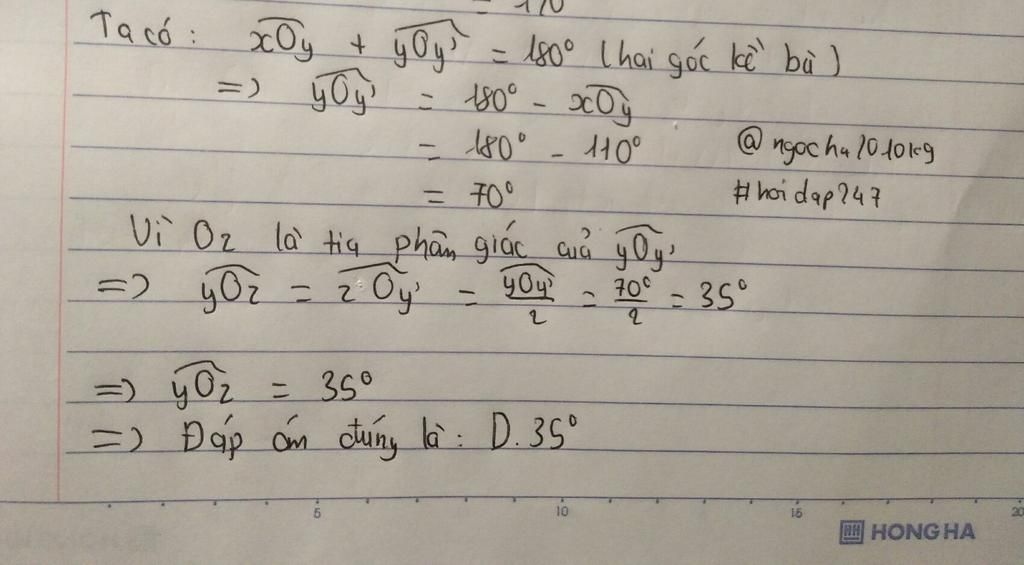 Ta có: xOy + yOy' = 180° (hai góc kề bù)
=> yOy' = 180° - xOy
= 180° - 110°
= 70°
@ngocha1010kg
#hoidap247
Vì Oz là tia phân giác của yOy'
=> yOz = zOy' = yOy'/2 = 70°/2 = 35°
=> yOz = 35°
=> Đáp án đúng là: D. 35°
5 10 15 20
HH HONG HA